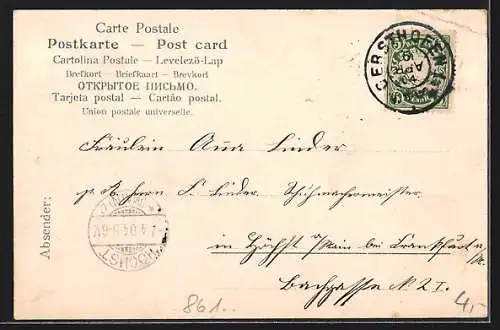 Carte Postale
Postkarte — Post card
Cartolina Postale — Levelező-Lap
Brefkort — Briefkaart — Brevkort
ОТКРЫТОЕ ПИСЬМО.
Tarjeta postal — Cartão postal.
Union postale universelle.
GERSTHOFEN
APR
04
Fräulein Anna Linder
p. A. Herrn F. Linder, Schuhmachermeister
in Höchst a/Main bei Frankfurt a/M.
Bachgasse N. 21.
Absender:
HÖCHST
4.04
861..
4,-